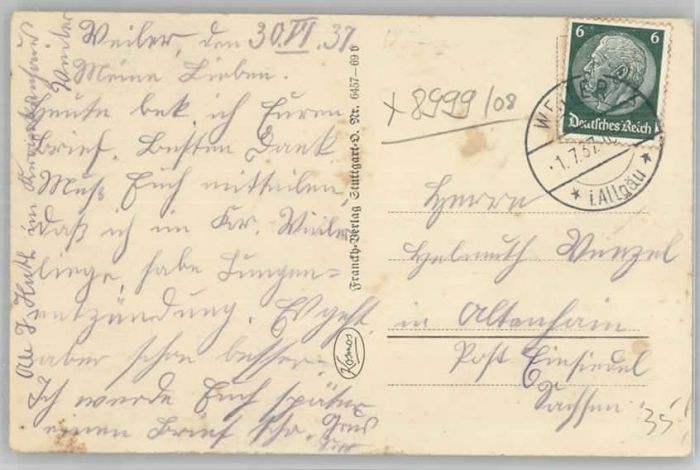 Weiler, den 30.VI.37
Meine Lieben.
Heute bek. ich Euren
Brief. Besten Dank.
Muß Euch mitteilen,
daß ich im Kr. Weiler
liege, habe Lungen-
entzündung. Es geht
aber schon besser.
Ich werde Euch später
einen Brief schr.
J. Hecht im Krankenhaus
Weiler
Franckh-Verlag Stuttgart-O. Nr. 6457—69 b
Kosmos
x 8999/08
6 6
Deutsches Reich
WEILER
1.7.37
i. Allgäu
Herrn
Helmuth Wenzel
in Altenhain
Post Einsiedel
Sachsen
35